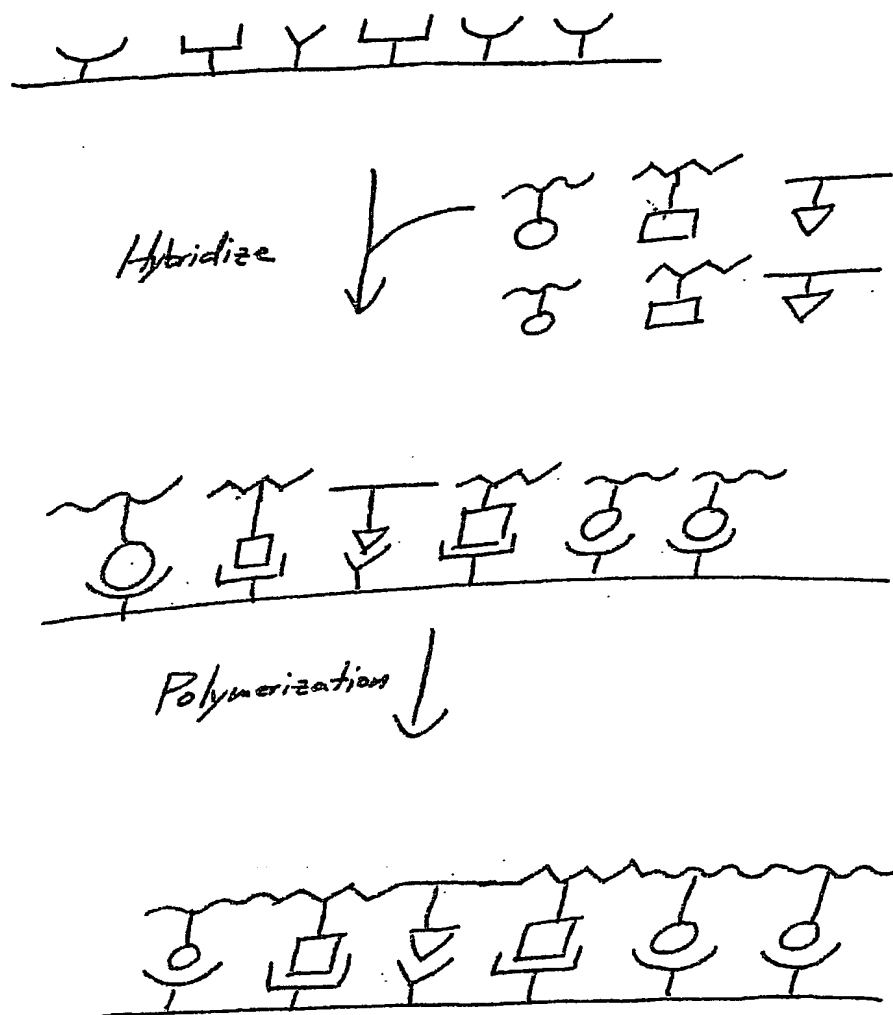 Hybridize
Polymerization